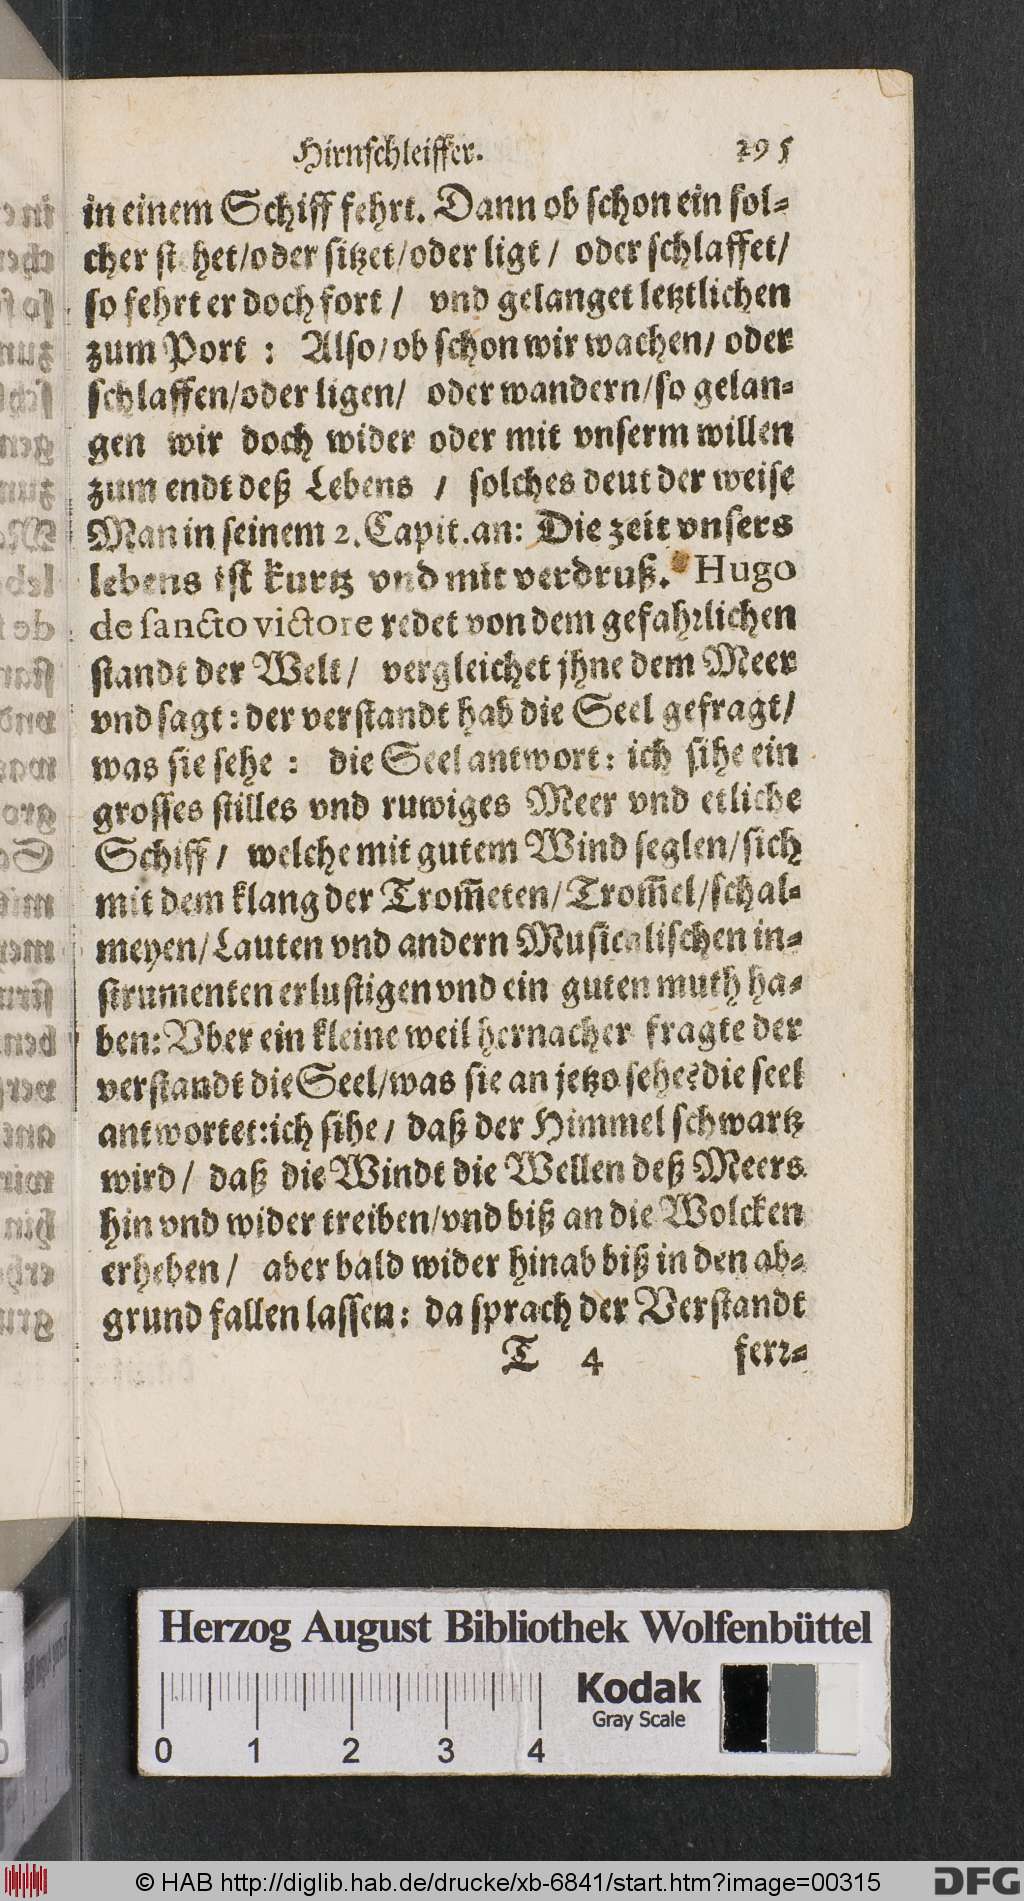 Hirnschleiffer. 295
in einem Schiff fehrt. Dann ob schon ein sol-
cher stehet/oder sitzet/oder ligt / oder schlaffet/
so fehrt er doch fort / vnd gelanget letztlichen
zum Port : Also/ob schon wir wachen/ oder
schlaffen/oder ligen/ oder wandern/so gelan-
gen wir doch wider oder mit vnserm willen
zum endt deß Lebens / solches deut der weise
Man in seinem 2. Capit. an: Die zeit vnsers
lebens ist kurtz vnd mit verdruß. Hugo
de sancto victore redet von dem gefahrlichen
standt der Welt/ vergleichet jhne dem Meer
vnd sagt: der verstandt hab die Seel gefragt/
was sie sehe : die Seel antwort: ich sihe ein
grosses stilles vnd ruwiges Meer vnd etliche
Schiff/ welche mit gutem Wind seglen/sich
mit dem klang der Trom̃eten/Trom̃el/schal-
meyen/Lauten vnd andern Musicalischen in-
strumenten erlustigen vnd ein guten muth ha-
ben: Vber ein kleine weil hernacher fragte der
verstandt die Seel/was sie an jetzo sehe? die seel
antwortet:ich sihe/ daß der Himmel schwartz
wird/ daß die Windt die Wellen deß Meers
hin vnd wider treiben/vnd biß an die Wolcken
erheben/ aber bald wider hinab biß in den ab-
grund fallen lassen: da sprach der Verstandt
T 4 ferr-
Herzog August Bibliothek Wolfenbüttel
0 1 2 3 4
Kodak
Gray Scale
© HAB http://diglib.hab.de/drucke/xb-6841/start.htm?image=00315
DFG